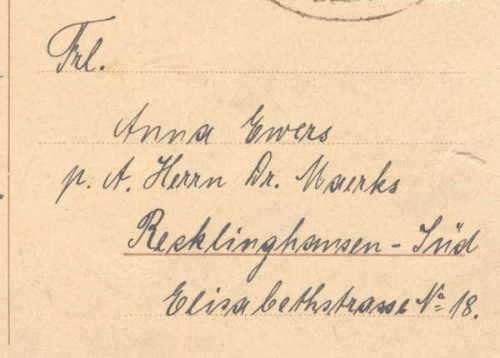 Frl.
Anna Ewers
p. A. Herrn Dr. Maerks
Recklinghausen - Süd
Elisabethstrasse No 18.